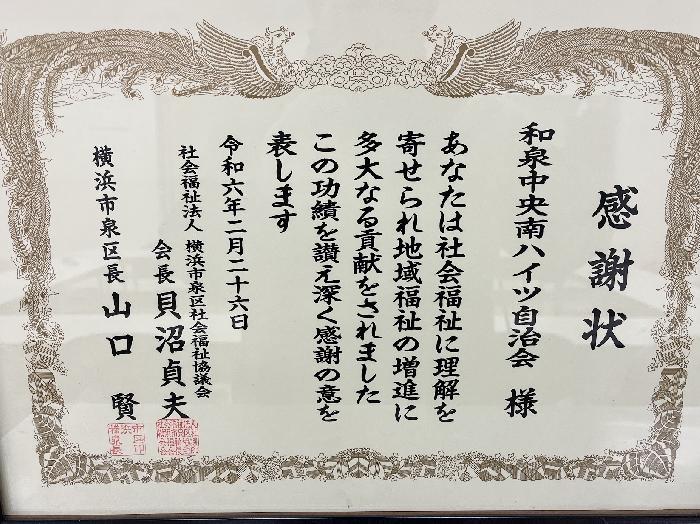 感謝状
和泉中央南ハイツ自治会 様
あなたは社会福祉に理解を
寄せられ地域福祉の増進に
多大なる貢献をされました
この功績を讃え深く感謝の意を
表します
令和六年二月二十六日
社会福祉法人 横浜市泉区社会福祉協議会
会長 貝沼貞夫
横浜市泉区長 山口 賢